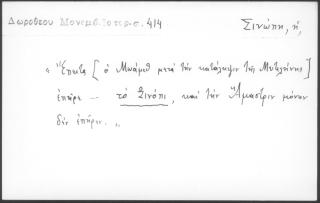 Δωροθέου Μονεμβ. Ιστορ. σ. 414
Σινώπη, ἡ,
« Ἔπειτα [ ὁ Μωάμεθ μετὰ τὴν κατάληψιν τῆς Μυτιλήνης ]
ἐπῆρε — τὸ Σινόπι, καὶ τὴν Ἄμαστριν μόνον
δὲν ἐπῆρεν. »